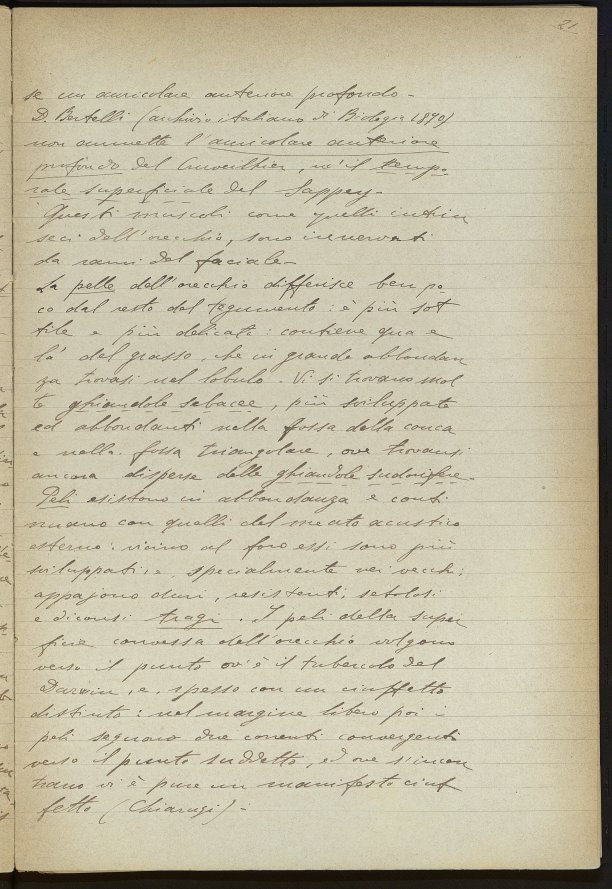 21.
se un auricolare anteriore profondo –
D. Bertelli (archivio italiano di Biologia 1890)
non ammette l'auricolare anteriore
profondo del Cruveilhier, nè il tempo-
rale superficiale del Sappey –
Questi muscoli come quelli intrin
seci dell'orecchio, sono innervati
da rami del faciale –
La pelle dell'orecchio differisce ben po-
co dal resto del tegumento: è più sot
tile e più delicata: contiene qua e
là del grasso, che in grande abbondan
za trovasi nel lobulo. Vi si trovano mol
te ghiandole sebacee, più sviluppate
ed abbondanti nella fossa della conca
e nella fossa triangolare, ove trovansi
ancora disperse delle ghiandole sudorifere –
Peli esistono in abbondanza e conti
nuano con quelli del meato acustico
esterno: vicino al foro essi sono più
sviluppati, e, specialmente nei vecchi,
appajono duri, resistenti, setolosi
e diconsi tragi. I peli della super
ficie convessa dell'orecchio volgono
verso il punto ov'è il tubercolo del
Darwin, e, spesso con un ciuffetto
distinto: nel margine libero poi i
peli segnano due correnti convergenti
verso il punto suddetto, ed ove s'incon
trano vi è pure un manifesto ciuf
fetto (Chiarugi) –